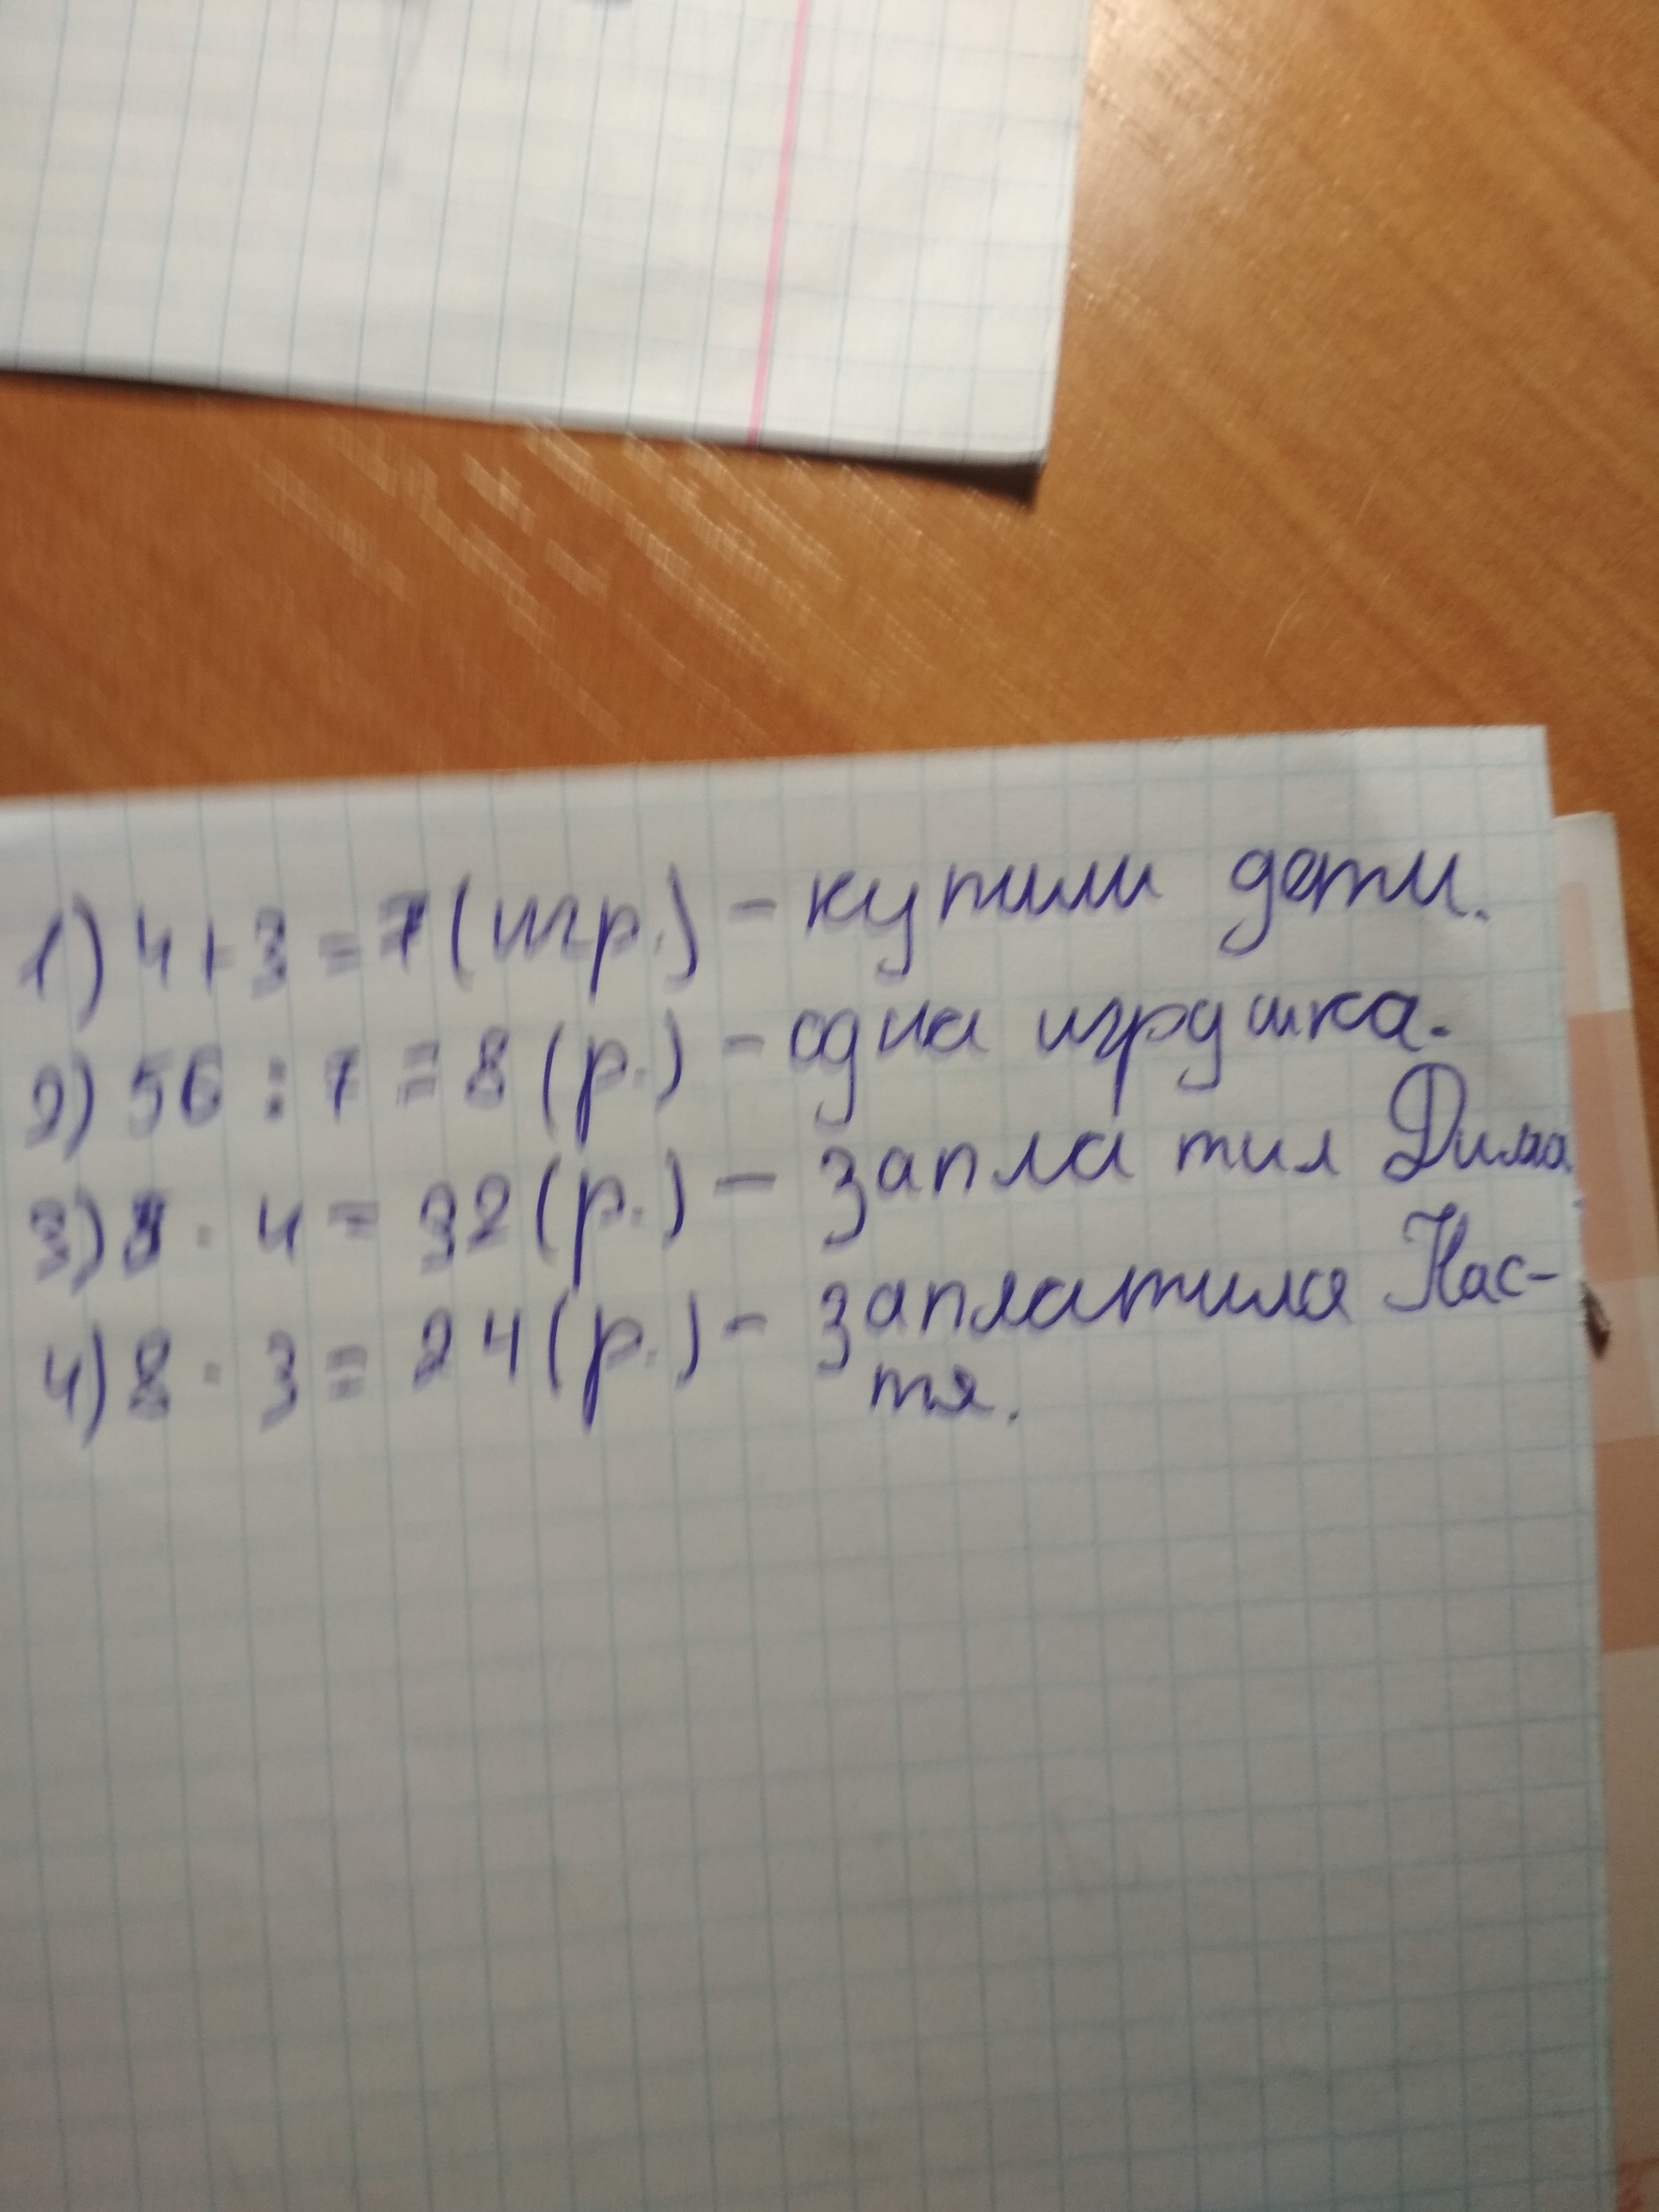 1) 4+3=7(игр.) - купили дети.
2) 56 : 7 = 8 (р.) - одна игрушка.
3) 8 · 4 = 32 (р.) - заплатил Дима.
4) 8 · 3 = 24 (р.) - заплатила Нас-
тя.